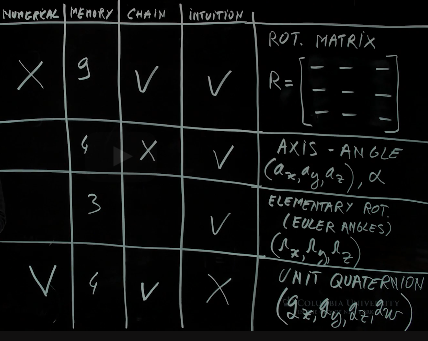 NUMERICAL MEMORY CHAIN INTUITION
ROT. MATRIX
X 9 V V R = [ — — — — — — — — — ]
4 X V AXIS - ANGLE
(ax, ay, az), α
3 V ELEMENTARY ROT.
(EULER ANGLES)
(rx, ry, rz)
V 4 V X UNIT QUATERNION
COLUMBIA UNIVERSITY
(qx, qy, qz, qw)